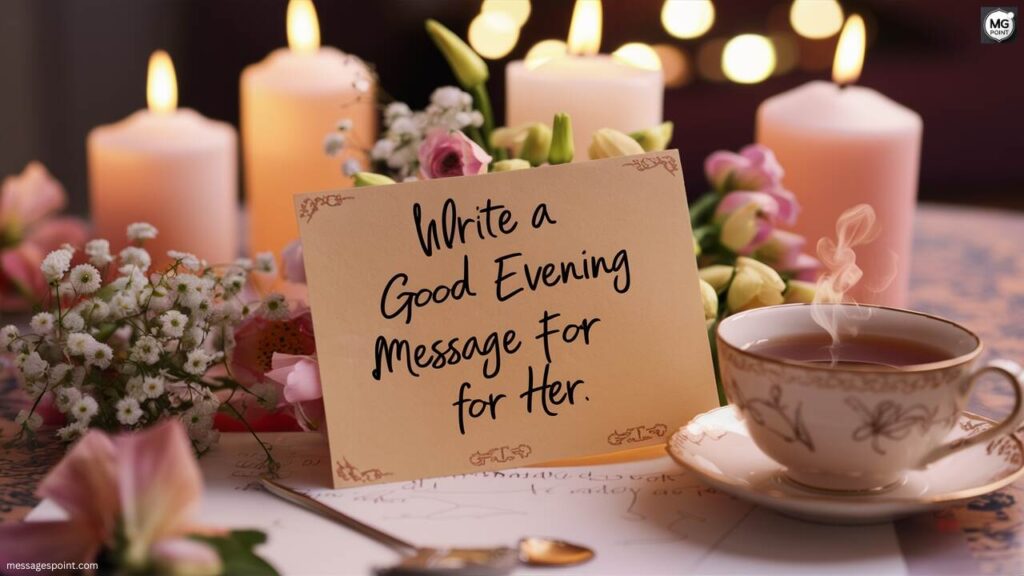 MG
POINT
Write a
Good Evening
Message For
for Her.
messagespoint.com